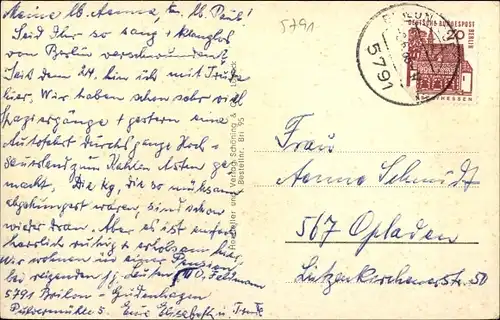 Meine lb. Aenne, lb. Paul!
Seid Ihr so sang + klanglos
von Berlin verschwunden?
Seit dem 24. bin ich mit Trude
hier. Wir haben schon sehr viel
Spaziergänge + gestern eine
Autofahrt durchs ganze Hoch-
sauerland zum Kahlen Asten ge-
macht. Die kg, die so mühsam
abgehungert waren, sind schon
wieder dran. Aber es ist einfach
herrlich ruhig + erholsam hier,
wir wohnen in einer Pension
bei reizenden jg. Leuten, Feldmann
5791 Brilon-Gudenhagen
Pulvermühle 5. Eure Elisabeth u. Trude
5791
Hersteller und Verlag Schöning & Co., Lübeck
Bestellnr. Bri 95
BRILON
5791
DEUTSCHE BUNDESPOST
BERLIN
20
Frau
Aenne Schmidt
567 Opladen
Lützenkirchenerstr. 50